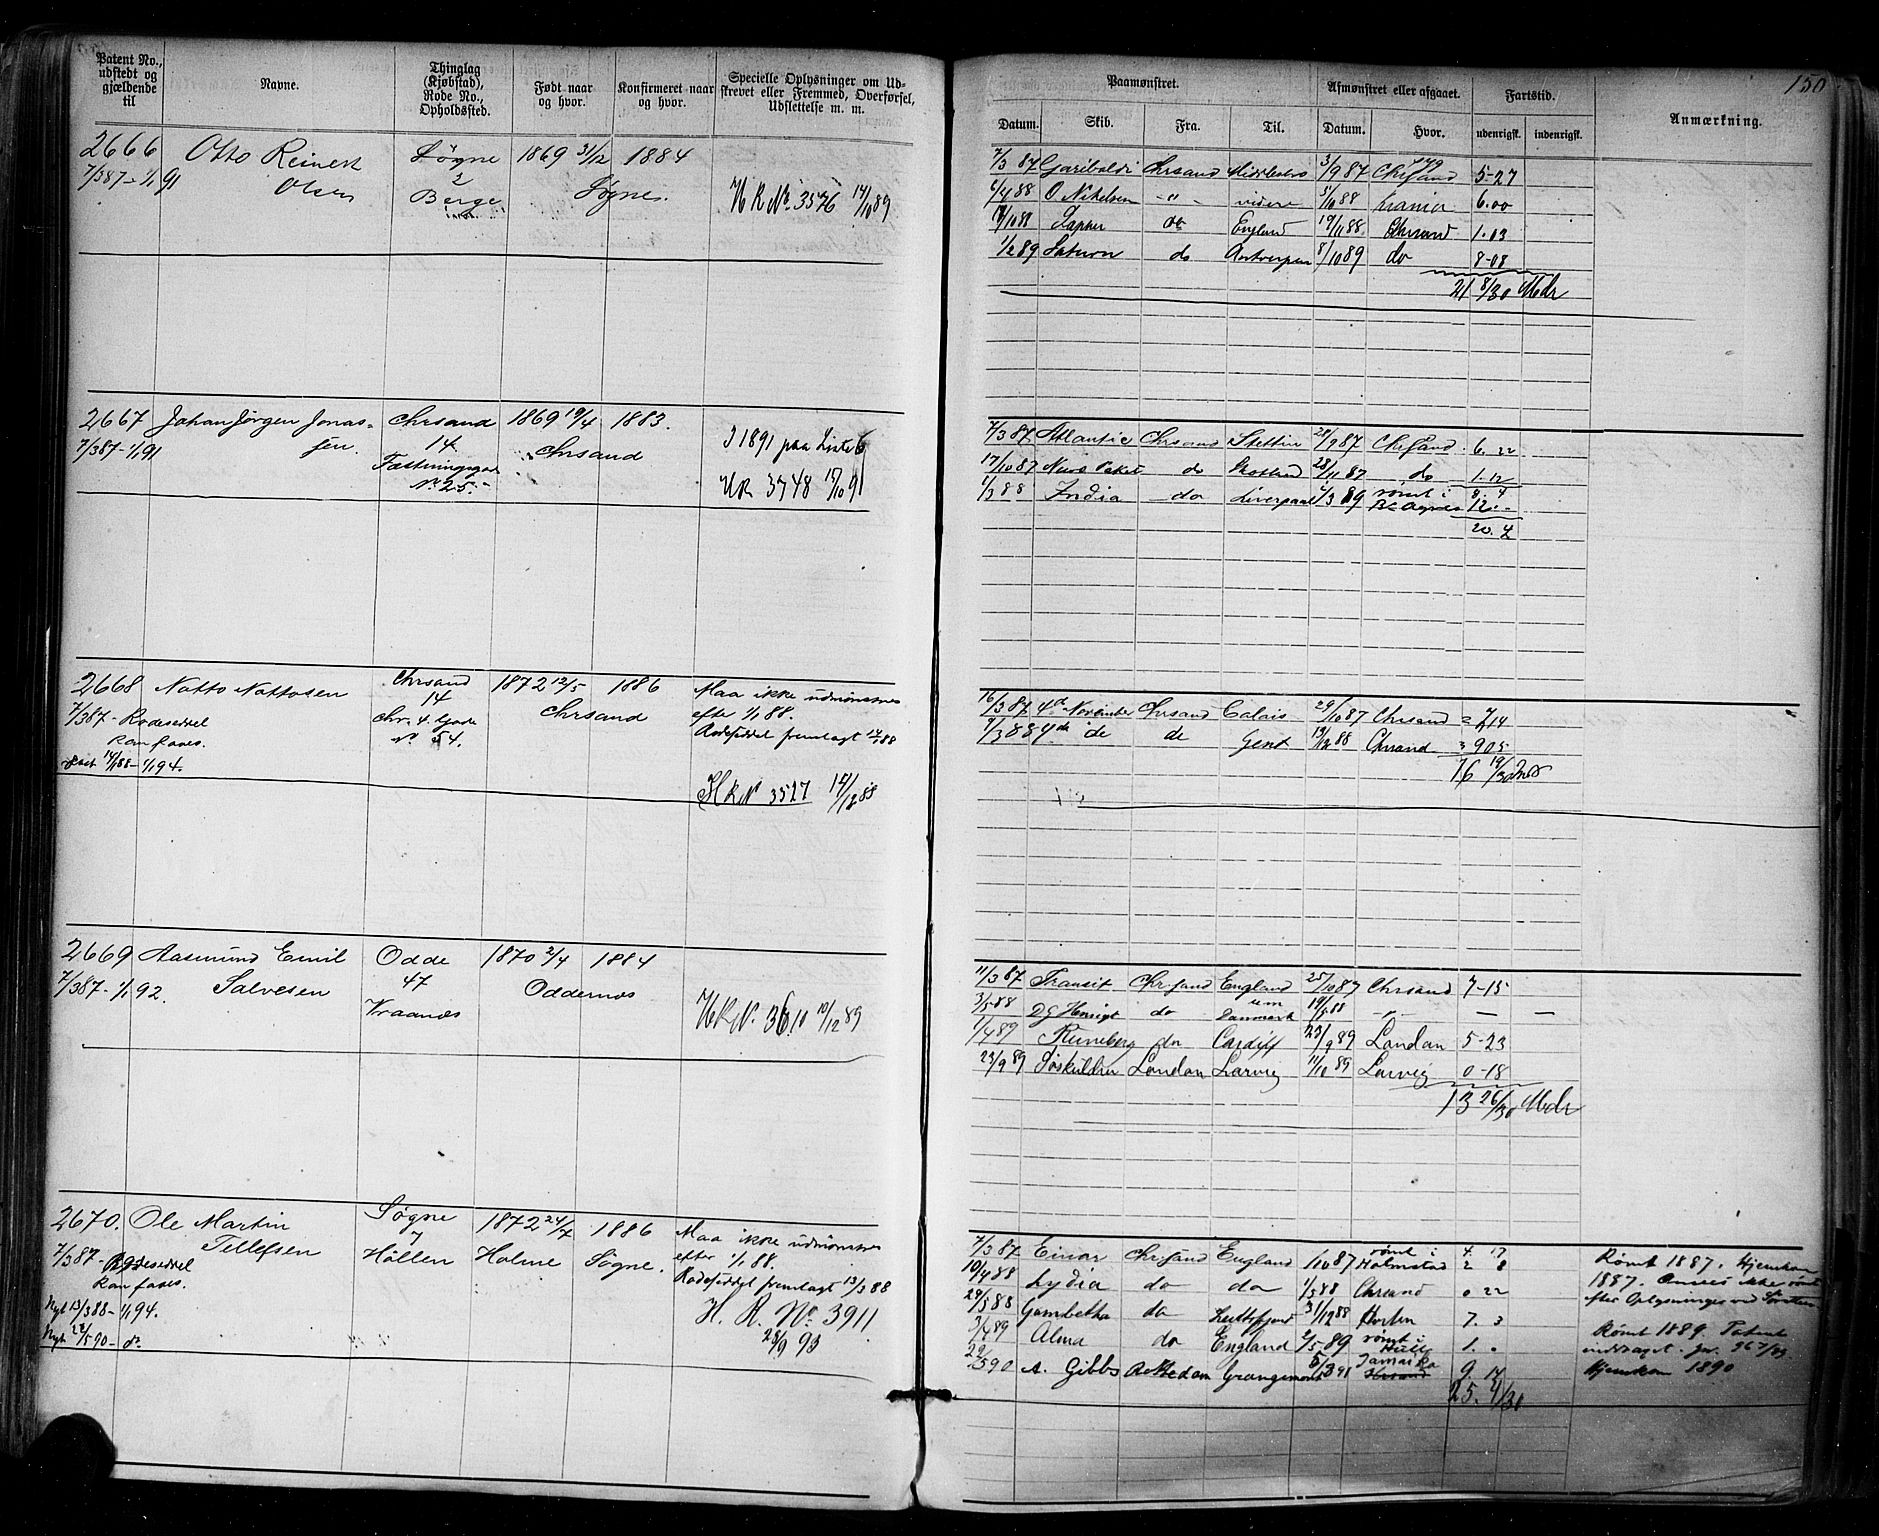 150
Patent No., udstedt og gjældende til
Navne.
Thinglag (Kjøbstad), Rode No., Opholdssted.
Født naar og hvor.
Konfirmeret naar og hvor.
Specielle Oplysninger om Udskrevet eller Fremmed, Overførsel, Udslettelse m. m.
Paamønstret.
Afmønstret eller afgaaet.
Fartstid.
Anmærkning.
Datum. Skib. Fra. Til. Datum. Hvor. udenrigsk. indenrigsk.
2666 Otto Reinert Søgne 1869 31/12 1884
7/387-1/1 91 Olsen 2 Søgne.
Berge
HR No. 3576 14/10 89
7/3 87 Garibaldi Chrsand 3/9 87 5-27
6/4 88 O Nikelsen - " - videre 5/10 88 6.00
England 19/11 88 Chrsand 1.03
1/2 89 Saturn do Antwerpen 8/10 89 do 8-08
21 8/30 Mdr
2667 Johan Jørgen Jonas- Chrsand 1869 19/4 1883.
7/387-1/1 91 sen. 14 Chrsand
Fæstningsgad
No 25.
I 1891 paa Liste 6
HR 3748 17/10 91
7/3 87 Atlantic Chrsand Stettin 28/9 87 Chrsand 6. 22
17/10 87 do Skotland 28/11 87 do 1.12
8. 4
1/3 88 India do Liverpool 1/3 89 rømt i 12.-
20. 4
2668 Notto Nottosen Chrsand 1872 12/5 1886
7/387- Rodeseddel 14 Chrsand
Kan faaes. Chr. 4. Gade
No 54.
14/1 88-1/1 94.
Maa ikke udmønstres
efter 1/1 88.
Rodeseddel fremlagt 14/1 88
HR No 3527 14/12 88
16/3 87 4de November Chrsand Calais 29/10 87 Chrsand 7/14
9/3 88 4de de de Gent 19/12 88 Chrsand 9 05
16 19/30 Mdr
2669 Aasmund Emil Odde 1870 2/4 1884
7/387-1/1 92. Salvesen 47 Oddernes
Kraanes
HR No. 3610 10/12 89
11/3 87 Transit Chrsand England 25/10 87 Chrsand 7-15
3/5 88 do Danmark 19/5 88 - " - — —
1/4 89 Runeberg do Cardiff 23/9 89 London 5-23
23/9 89 London Larvig 11/10 89 Larvig 0-18
13 26/30 Mdr
2670. Ole Martin Søgne 1872 24/7 1886
7/387- Rodeseddel Tellefsen 7 Holme Søgne.
Kan faaes. Høllen
Nyt 13/3 88-1/1 94.
Nyt 22/5 90- do
Maa ikke udmønstres
efter 1/1 88.
Rodeseddel fremlagt 13/3 88
H. R. No. 3911
28/9 93
7/3 87 Einar Chrsand England 1/10 87 rømt i Halmstad 4. 17
2 8
10/4 88 Lydia do do 1/5 88 Chrsand 0 22
29/5 88 Gambetta do 31/12 88 Horten 7. 3
3/4 89 Alma do England 2/5 89 rømt i Hull 1. .
29/5 90 A. Gibbs Rotterdam Grangemout 5/3 91 Jamaika 9. 14
25. 4/30
Rømt 1887. Hjemkom
1887. Ansees ikke rømt
efter Oplysninger ved
Rømt 1889. Patent
inddraget.
Hjemkom 1890